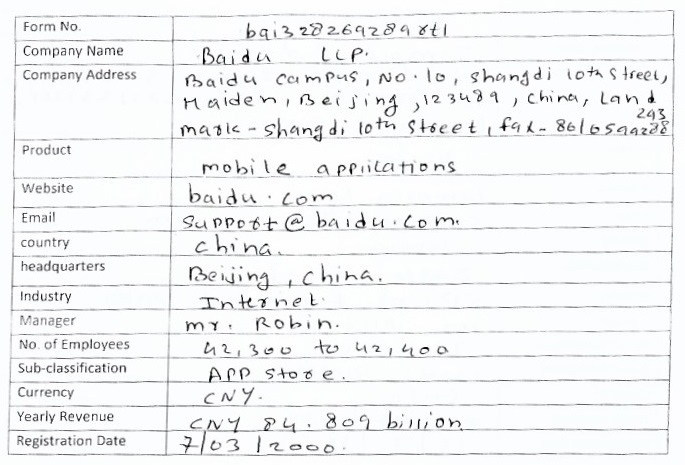 Form No. bqi328269289rt1
Company Name Baidu LLP.
Company Address Baidu campus, NO.10, shangdi 10th street,
Haiden, Beijing, 123489, china, Land
mark - shangdi 10th street, fax - 8610599288
293
Product mobile appiications
Website baidu.com
Email support@baidu.com.
country china.
headquarters Beijing, china.
Industry Internet.
Manager mr. Robin.
No. of Employees 42,300 to 42,400
Sub-classification APP store.
Currency CNY.
Yearly Revenue CNY 84.809 billion
Registration Date 7/03/2000.